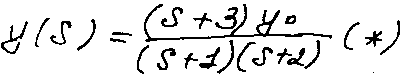 y(s) = (s+3) y₀ / (s+1)(s+2) (*)